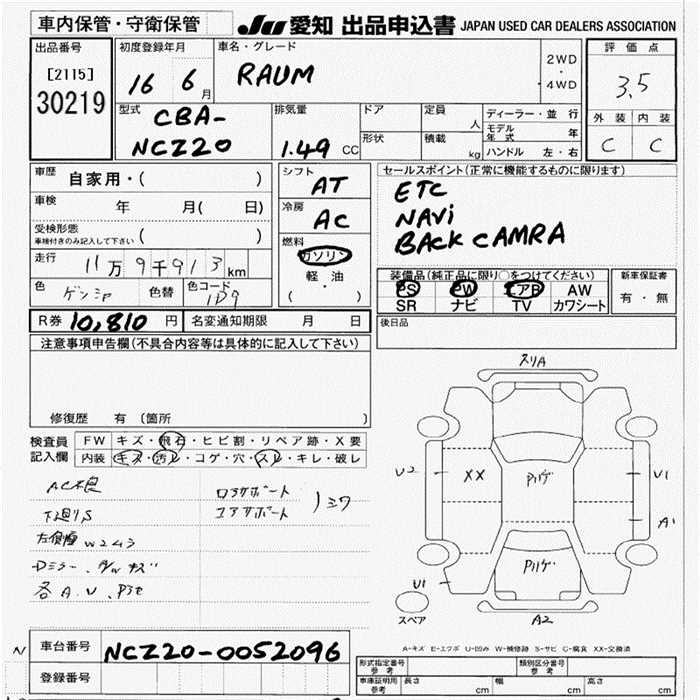 車内保管・守衛保管
JU 愛知 出品申込書 JAPAN USED CAR DEALERS ASSOCIATION
出品番号
[2115]
30219
初度登録年月
16 6月
車名・グレード
RAUM
2WD
・
4WD
評価点
3.5
外装 内装
C C
型式
CBA-
NCZ20
排気量
1.49 CC
ドア
形状
定員 人
積載 kg
ディーラー・並行
モデル年式 年
ハンドル 左・右
車歴 自家用・( )
車検 年 月( 日)
受検形態
車検付きのみ記入して下さい ( )
走行 11万9千913km
色 ゲンシャ 色替 色コード 1D9
シフト
AT
冷房
AC
燃料
ガソリン
軽・油
( )
セールスポイント(正常に機能するものに限ります)
ETC
NAVi
BACK CAMRA
装備品(純正品に限り○をつけてください)
PS PW エアB AW
SR ナビ TV カワシート
新車保証書
有・無
R券 10,810 円 名変通知期限 月 日
後日品
注意事項申告欄(不具合内容等は具体的に記入して下さい)
修復歴 有(箇所 )
検査員記入欄
FW キズ・飛石・ヒビ割・リペア跡・X要
内装 キズ・汚レ・コゲ・穴・スレ・キレ・破レ
AC不良
下廻りS
Dミラー
各A.U.
スリA
U2
XX
U1
A1
U1
A2
スペア
A-キズ E-エクボ U-凹み W-補修跡 S-サビ C-腐食 XX-交換済
N
車台番号 NCZ20-0052096
登録番号
形式指定番号 参考
類別区分番号 参考
車庫証明用 参考 長さ cm 幅 cm 高さ cm